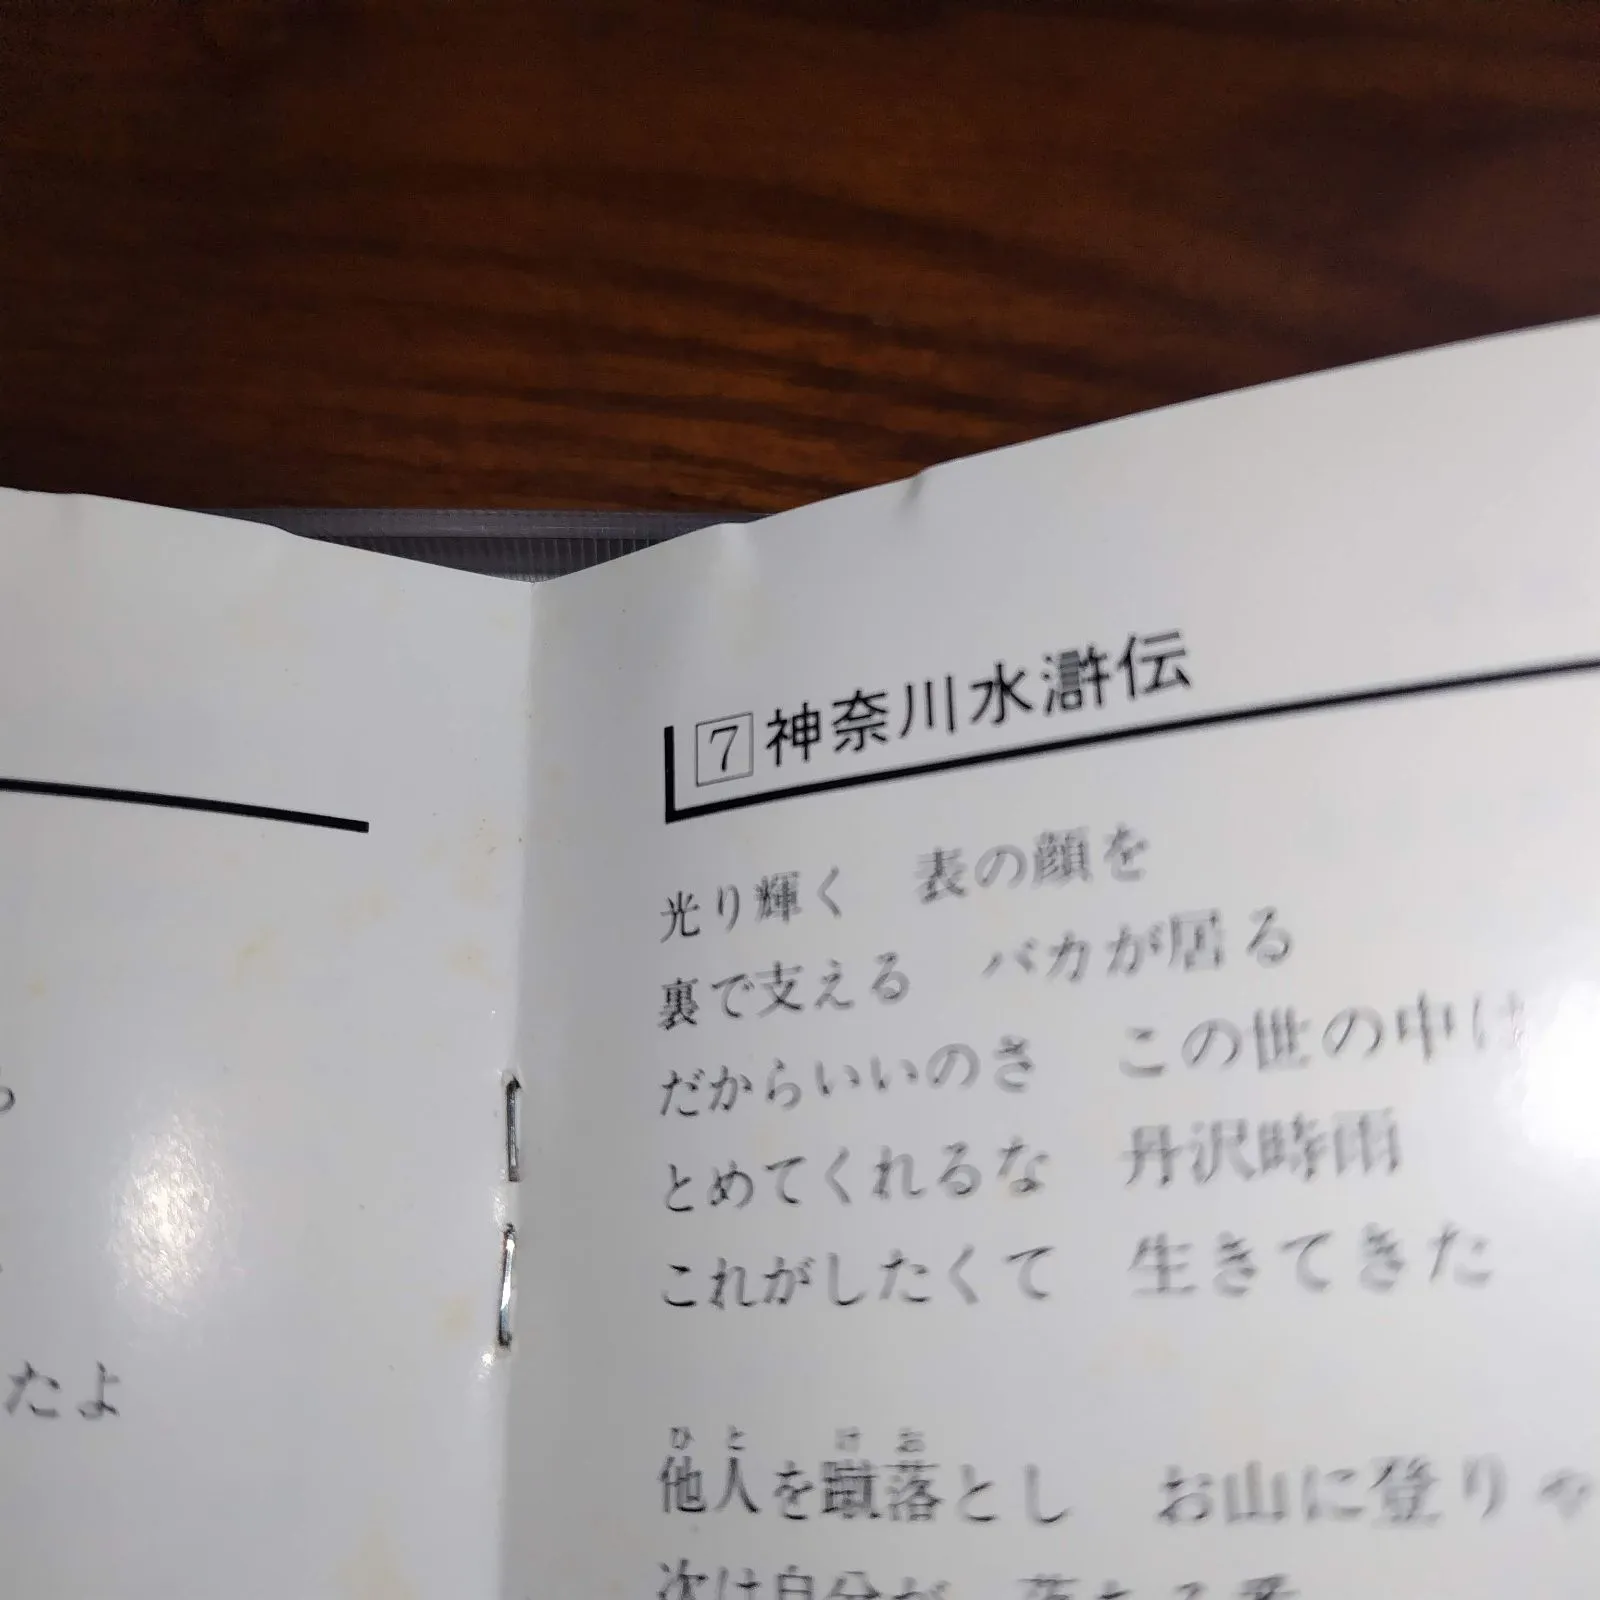 たよ
7 神奈川水滸伝
光り輝く　表の顔を
裏で支える　バカが居る
だからいいのさ　この世の中は
とめてくれるな　丹沢時雨
これがしたくて　生きてきた
ひと　けお
他人を蹴落とし　お山に登りゃ
次は自分が　落ちる番